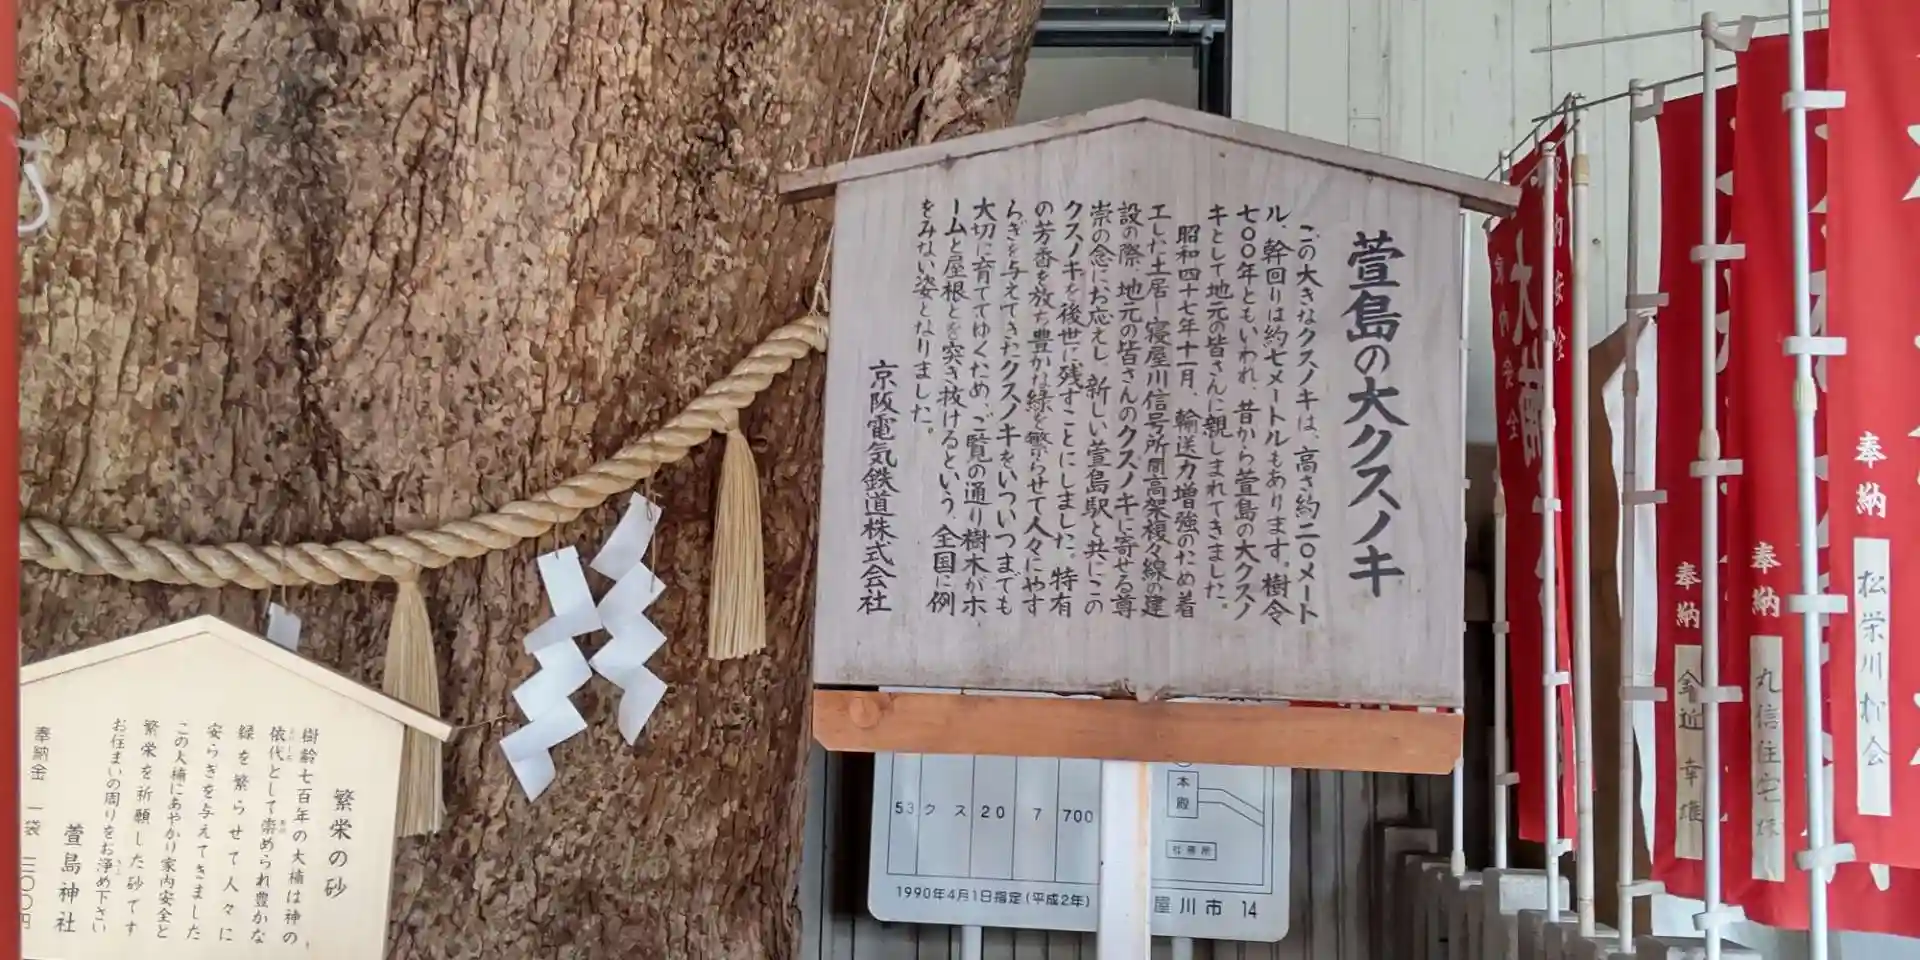 萱島の大クスノキ
この大きなクスノキは、高さ約二〇メート
ル、幹回りは約七メートルもあります。樹令
七〇〇年ともいわれ、昔から萱島の大クスノ
キとして地元の皆さんに親しまれてきました。
昭和四十七年十一月、輸送力増強のため着
工した土居―寝屋川信号所間高架複々線の建
設の際、地元の皆さんのクスノキに寄せる尊
崇の念にお応えし、新しい萱島駅と共にこの
クスノキを後世に残すことにしました。特有
の芳香を放ち豊かな緑を繁らせて人々にやす
らぎを与えてきたクスノキをいついつまでも
大切に育ててゆくため、ご覧の通り樹木がホ
ームと屋根とを突き抜けるという、全国に例
をみない姿となりました。
京阪電気鉄道株式会社
繁栄の砂
樹齢七百年の大楠は神の
依代として崇められ豊かな
緑を繁らせて人々に
安らぎを与えてきました
この大楠にあやかり家内安全と
繁栄を祈願した砂です
お住まいの周りをお浄め下さい
萱島神社
奉納金 一袋 三〇〇円
53 クス 20 7 700
1990年4月1日指定(平成2年)
本殿
社務所
屋川市 14
奉納
松栄川
会
奉納
丸信住宅
奉納
大楠